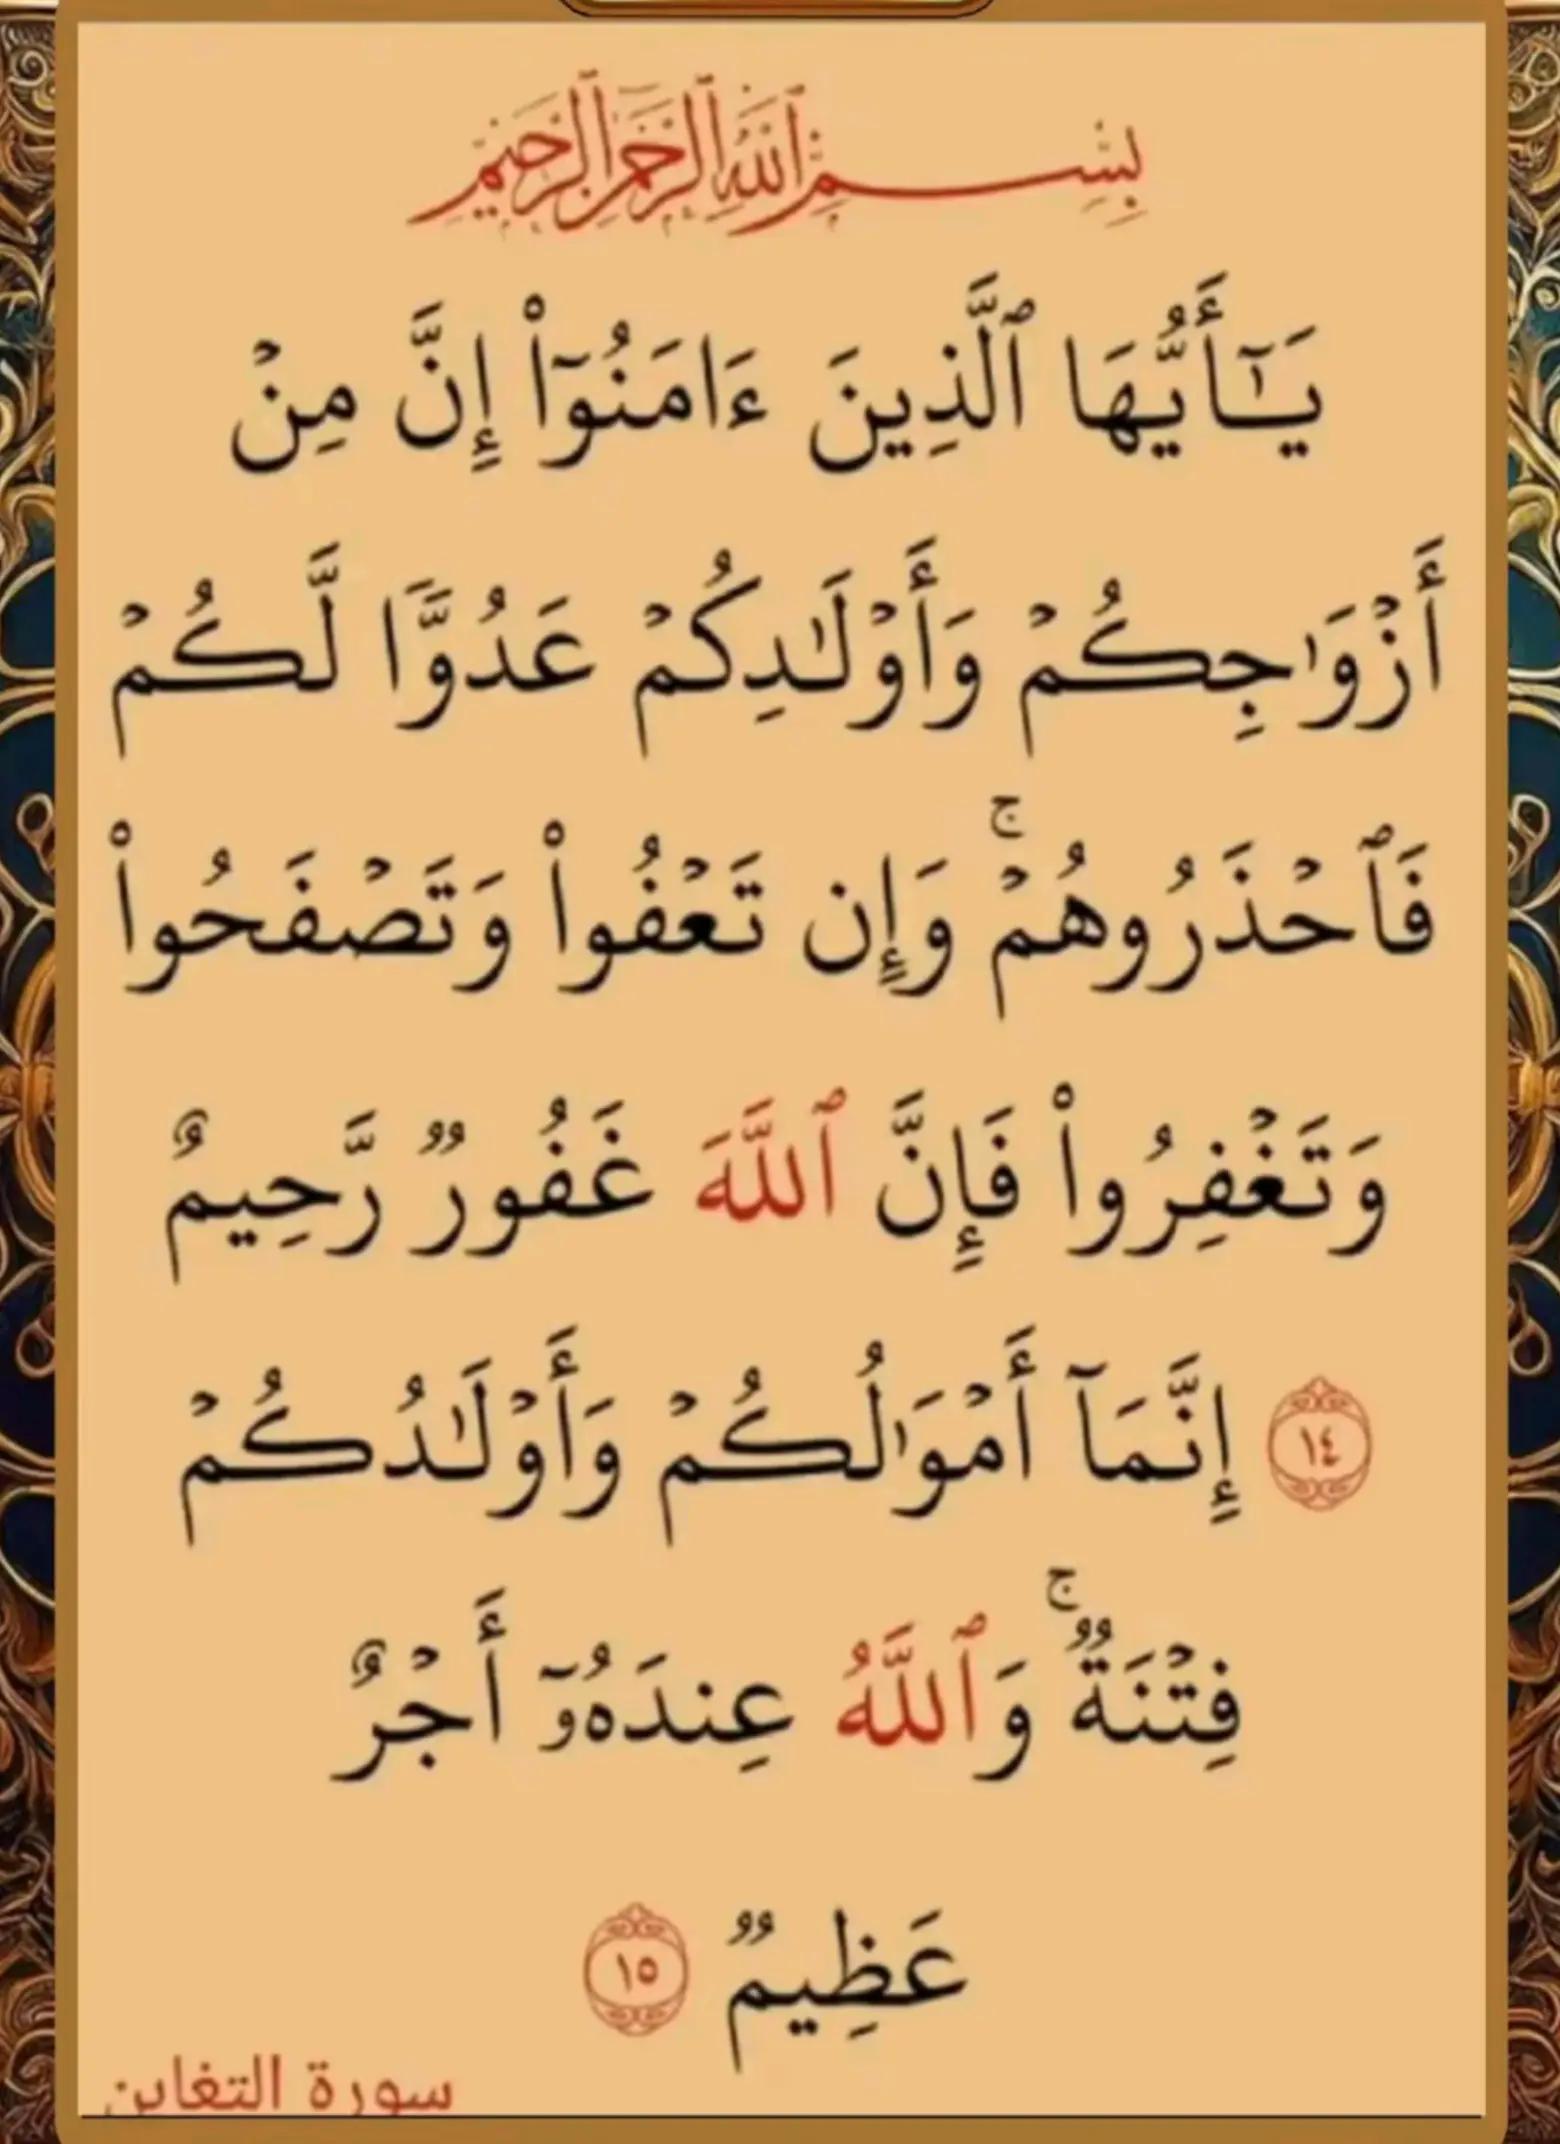 بِسۡمِ ٱللَّهِ ٱلرَّحۡمَٰنِ ٱلرَّحِيمِ
يَـٰٓأَيُّهَا ٱلَّذِينَ ءَامَنُوٓاْ إِنَّ مِنۡ
أَزۡوَٰجِكُمۡ وَأَوۡلَٰدِكُمۡ عَدُوّٗا لَّكُمۡ
فَٱحۡذَرُوهُمۡۚ وَإِن تَعۡفُواْ وَتَصۡفَحُواْ
وَتَغۡفِرُواْ فَإِنَّ ٱللَّهَ غَفُورٞ رَّحِيمٌ
١٤ إِنَّمَآ أَمۡوَٰلُكُمۡ وَأَوۡلَٰدُكُمۡ
فِتۡنَةٞۚ وَٱللَّهُ عِندَهُۥٓ أَجۡرٌ
عَظِيمٞ ١٥
سورة التغابن